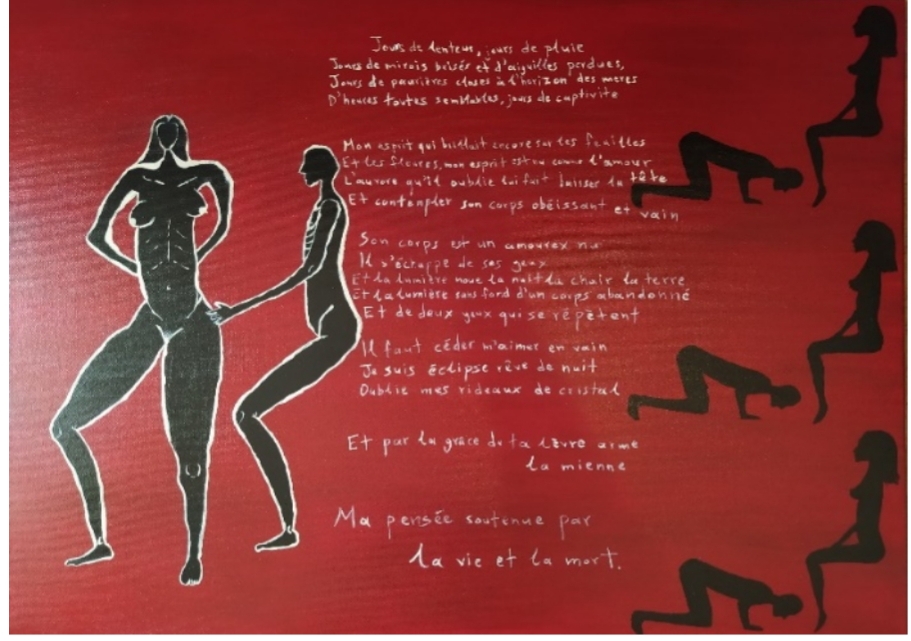 Jours de lenteur, jours de pluie
Jours de mirois brisés et d'aiguilles perdues,
Jours de paurières closes à l'horizon des meres
D'heures toutes semblables, jours de captivité
Mon esprit qui brillait encore sur les feuilles
Et les fleures, mon esprit est nu come l'amour
L'aurore qu'il oublie lui fait baisser la tête
Et contempler son corps obéissant et vain
Son corps est un amourex nu
Il s'échappe de ses yeux
Et la lumière noue la nuit la chair la terre
Et la lumière sans fond d'un corps abandonné
Et de deux yeux qui se répètent
Il faut céder m'aimer en vain
Je suis éclipse rêve de nuit
Oublie mes rideaux de cristal
Et par la grâce de ta lèvre arme
la mienne
Ma pensée soutenue par
la vie et la mort.